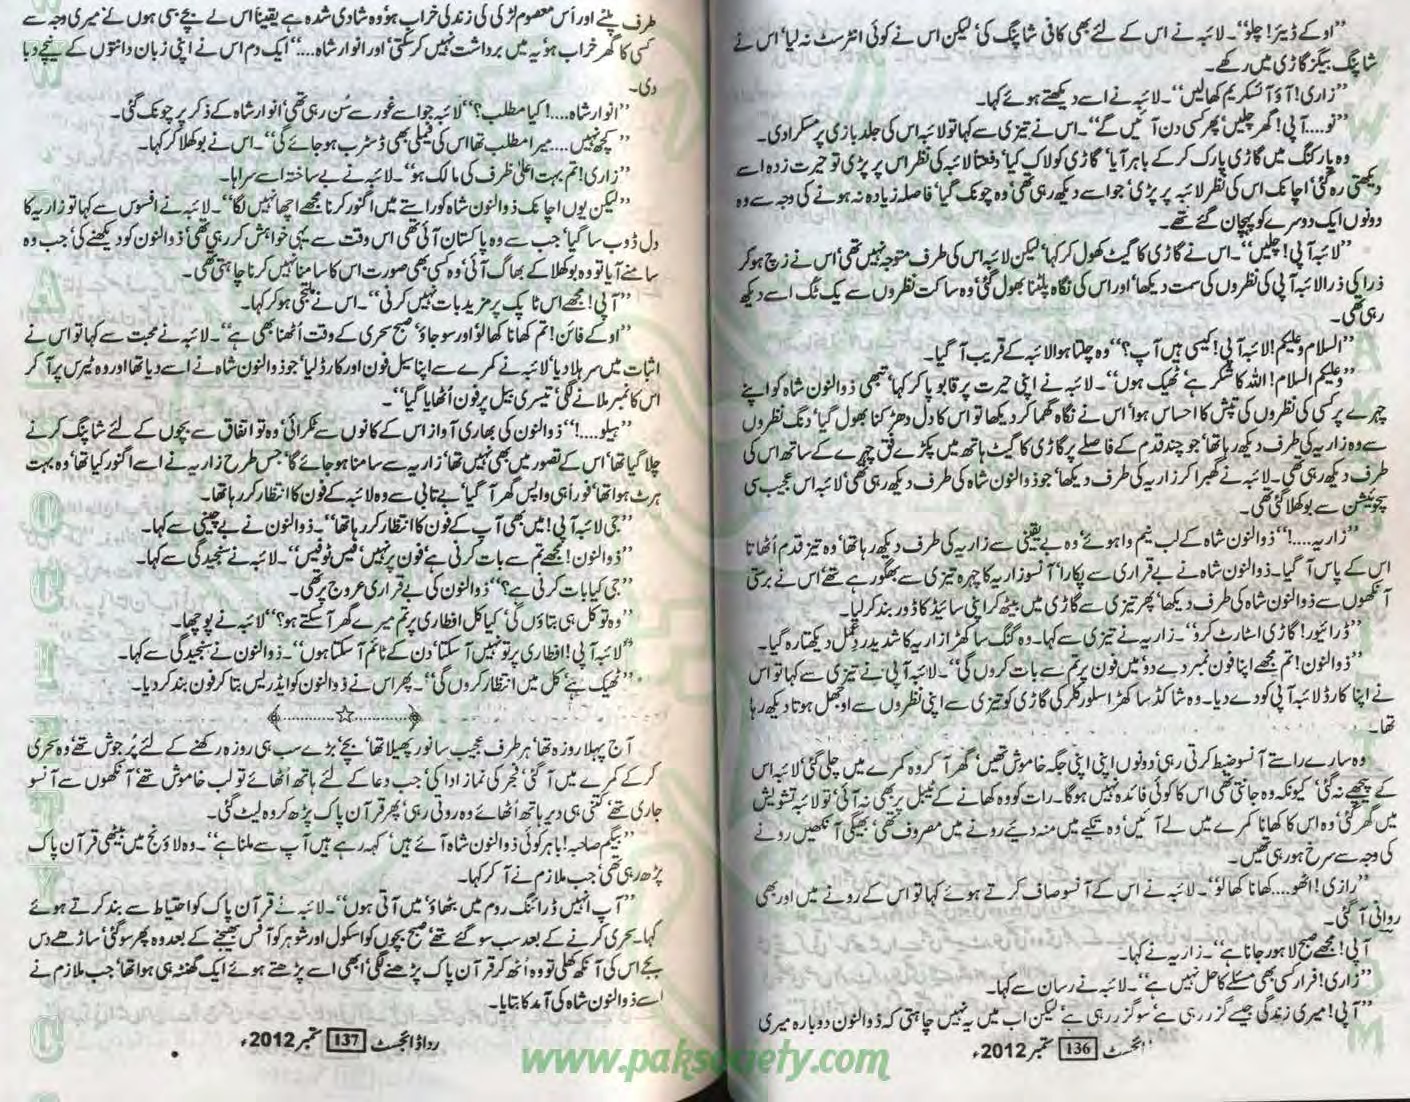 ”اوکے ڈیئر! چلو“۔ لائبہ نے اس کے لئے بھی کافی شاپنگ کی‘ لیکن اس نے کوئی انٹرسٹ نہ لیا‘ اس نے
شاپنگ بیگز گاڑی میں رکھے۔
”زاری! آؤ آئسکریم کھالیں“۔ لائبہ نے اسے دیکھتے ہوئے کہا۔
”نو.... آپی! گھر چلیں‘ پھر کسی دن آئیں گے“۔ اس نے تیزی سے کہا تو لائبہ اس کی جلد بازی پر مسکرا دی۔
وہ پارکنگ میں گاڑی پارک کر کے باہر آیا‘ گاڑی کو لاک کیا‘ دفعتاً لائبہ کی نظر اس پر پڑی تو حیرت زدہ اسے
دیکھتی رہ گئی‘ اچانک اس کی نظر لائبہ پر پڑی‘ جو اسے دیکھ رہی تھی‘ وہ چونک گیا‘ فاصلہ زیادہ نہ ہونے کی وجہ سے وہ
دونوں ایک دوسرے کو پہچان گئے تھے۔
”لائبہ آپی! چلیں“۔ اس نے گاڑی کا گیٹ کھول کر کہا‘ لیکن لائبہ اس کی طرف متوجہ نہیں تھی‘ اس نے زچ ہو کر
ذرا کی ذرا لائبہ آپی کی نظروں کی سمت دیکھا‘ اور اس کی نگاہ پلٹنا بھول گئی‘ وہ ساکت نظروں سے یک ٹک اسے دیکھ
رہی تھی۔
”السلام وعلیکم! لائبہ آپی! کیسی ہیں آپ؟“ وہ چلتا ہوا لائبہ کے قریب آ گیا۔
”وعلیکم السلام! اللہ کا شکر ہے‘ ٹھیک ہوں“۔ لائبہ نے اپنی حیرت پر قابو پا کر کہا‘ تبھی ذوالنون شاہ کو اپنے
چہرے پر کسی کی نظروں کی تپش کا احساس ہوا‘ اس نے نگاہ گھما کر دیکھا تو اس کا دل دھڑکنا بھول گیا‘ دنگ نظروں
سے وہ زاریہ کی طرف دیکھ رہا تھا‘ جو چند قدم کے فاصلے پر گاڑی کا گیٹ ہاتھ میں پکڑے فق چہرے کے ساتھ اس کی
طرف دیکھ رہی تھی۔ لائبہ نے گھبرا کر زاریہ کی طرف دیکھا‘ جو ذوالنون شاہ کی طرف دیکھ رہی تھی‘ لائبہ اس عجیب سی
سچویشن سے بوکھلا گئی تھی۔
”زاریہ....!“ ذوالنون شاہ کے لب نیم وا ہوئے‘ وہ بے یقینی سے زاریہ کی طرف دیکھ رہا تھا‘ وہ تیز قدم اُٹھاتا
اس کے پاس آ گیا۔ ذوالنون شاہ نے بے قراری سے پکارا‘ آنسو زاریہ کا چہرہ تیزی سے بھگو رہے تھے‘ اس نے برستی
آنکھوں سے ذوالنون شاہ کی طرف دیکھا‘ پھر تیزی سے گاڑی میں بیٹھ کر اپنی سائیڈ کا ڈور بند کر لیا۔
”ڈرائیور! گاڑی اسٹارٹ کرو“۔ زاریہ نے تیزی سے کہا۔ وہ گنگ سا کھڑا زاریہ کا شدید ردِ عمل دیکھتا رہ گیا۔
”ذوالنون! تم مجھے اپنا فون نمبر دے دو‘ میں فون پر تم سے بات کروں گی“۔ لائبہ آپی نے تیزی سے کہا تو اس
نے اپنا کارڈ لائبہ آپی کو دے دیا۔ وہ شاکڈ سا کھڑا سلور کلر کی گاڑی کو تیزی سے اپنی نظروں سے اوجھل ہوتا دیکھ رہا
تھا۔
وہ سارے راستے آنسو ضبط کرتی رہی‘ دونوں اپنی اپنی جگہ خاموش تھیں‘ گھر آ کر وہ کمرے میں چلی گئی‘ لائبہ اس
کے پیچھے نہ گئی‘ کیونکہ وہ جانتی تھی اس کا کوئی فائدہ نہیں ہوگا۔ رات کو وہ کھانے کے ٹیبل پر بھی نہ آئی‘ تو لائبہ تشویش
میں گھر گئی‘ وہ اس کا کھانا کمرے میں لے آئیں‘ وہ تکیے میں منہ دیئے رونے میں مصروف تھی‘ بھیگی آنکھیں رونے
کی وجہ سے سرخ ہو رہی تھیں۔
”زاری! اٹھو.... کھانا کھالو“۔ لائبہ نے اس کے آنسو صاف کرتے ہوئے کہا تو اس کے رونے میں اور بھی
روانی آ گئی۔
آپی! مجھے صبح لاہور جانا ہے“۔ زاریہ نے کہا۔
”زاری! فرار کسی بھی مسئلے کا حل نہیں ہے“۔ لائبہ نے رسان سے کہا۔
”آپی! میری زندگی جیسے گزر رہی ہے‘ سو گزر رہی ہے‘ لیکن اب میں یہ نہیں چاہتی کہ ذوالنون دوبارہ میری
ڈائجسٹ 136 ستمبر 2012ء
طرف پلٹے اور اُس معصوم لڑکی کی زندگی خراب ہو‘ وہ شادی شدہ ہے یقیناً اس کے بچے بھی ہوں گے‘ میری وجہ سے
کسی کا گھر خراب ہو‘ یہ میں برداشت نہیں کر سکتی‘ اور انوار شاہ....“ ایک دم اس نے اپنی زبان دانتوں کے نیچے دبا
دی۔
”انوار شاہ....! کیا مطلب؟“ لائبہ جو اسے غور سے سُن رہی تھی‘ انوار شاہ کے ذکر پر چونک گئی۔
”کچھ نہیں.... میرا مطلب تھا اس کی فیملی بھی ڈسٹرب ہو جائے گی“۔ اس نے بوکھلا کر کہا۔
”زاری! تم بہت اعلیٰ ظرف کی مالک ہو“۔ لائبہ نے بے ساختہ اسے سراہا۔
”لیکن یوں اچانک ذوالنون شاہ کو راستے میں اگنور کرنا مجھے اچھا نہیں لگا“۔ لائبہ نے افسوس سے کہا تو زاریہ کا
دل ڈوب سا گیا‘ جب سے وہ پاکستان آئی تھی اس وقت سے یہی خواہش کر رہی تھی‘ ذوالنون کو دیکھنے کی‘ جب وہ
سامنے آیا تو وہ بوکھلا کے بھاگ آئی‘ وہ کسی بھی صورت اس کا سامنا نہیں کرنا چاہتی تھی۔
”آپی! مجھے اس ٹاپک پر مزید بات نہیں کرنی“۔ اس نے ملتجی ہو کر کہا۔
”اوکے فائن! تم کھانا کھالو اور سو جاؤ‘ صبح سحری کے وقت اُٹھنا بھی ہے“۔ لائبہ نے محبت سے کہا تو اس نے
اثبات میں سر ہلا دیا‘ لائبہ نے کمرے سے اپنا سیل فون اور کارڈ لیا‘ جو ذوالنون شاہ نے اسے دیا تھا اور وہ ٹیرس پر آ کر
اس کا نمبر ملانے لگی‘ تیسری بیل پر فون اُٹھایا گیا“۔
”ہیلو....!“ ذوالنون کی بھاری آواز اس کے کانوں سے ٹکرائی‘ وہ تو اتفاق سے بچوں کے لئے شاپنگ کرنے
چلا گیا تھا‘ اس کے تصور میں بھی نہیں تھا‘ زاریہ سے سامنا ہو جائے گا‘ جس طرح زاریہ نے اسے اگنور کیا تھا‘ وہ بہت
ہرٹ ہوا تھا‘ فوراً ہی واپس گھر آ گیا‘ بے تابی سے وہ لائبہ کے فون کا انتظار کر رہا تھا۔
”جی لائبہ آپی! میں بھی آپ کے فون کا انتظار کر رہا تھا“۔ ذوالنون نے بے چینی سے کہا۔
”ذوالنون! مجھے تم سے بات کرنی ہے‘ فون پر نہیں‘ فیس ٹو فیس“۔ لائبہ نے سنجیدگی سے کہا۔
”جی کیا بات کرنی ہے؟“ ذوالنون کی بے قراری عروج پر تھی۔
”وہ تو کل ہی بتاؤں گی‘ کیا کل افطاری پر تم میرے گھر آ سکتے ہو؟“ لائبہ نے پوچھا۔
”لائبہ آپی! افطاری پر تو نہیں آ سکتا‘ دن کے ٹائم آ سکتا ہوں“۔ ذوالنون نے سنجیدگی سے کہا۔
”ٹھیک ہے‘ کل میں انتظار کروں گی“۔ پھر اس نے ذوالنون کو ایڈریس بتا کر فون بند کر دیا۔
☆
آج پہلا روزہ تھا‘ ہر طرف عجیب سا نور پھیلا تھا‘ بچے‘ بڑے سب ہی روزہ رکھنے کے لئے پُر جوش تھے‘ وہ سحری
کر کے کمرے میں آ گئی‘ فجر کی نماز ادا کی‘ جب دعا کے لئے ہاتھ اُٹھائے تو لب خاموش تھے‘ آنکھوں سے آنسو
جاری تھے‘ کتنی ہی دیر ہاتھ اُٹھائے وہ روتی رہی‘ پھر قرآن پاک پڑھ کر وہ لیٹ گئی۔
”بیگم صاحبہ! باہر کوئی ذوالنون شاہ آئے ہیں‘ کہہ رہے ہیں آپ سے ملنا ہے“۔ وہ لاؤنج میں بیٹھی قرآن پاک
پڑھ رہی تھی‘ جب ملازم نے آ کر کہا۔
”آپ انہیں ڈرائنگ روم میں بٹھاؤ‘ میں آتی ہوں“۔ لائبہ نے قرآن پاک کو احتیاط سے بند کرتے ہوئے
کہا۔ سحری کرنے کے بعد سب سو گئے تھے‘ صبح بچوں کو اسکول اور شوہر کو آفس بھیجنے کے بعد وہ پھر سو گئی‘ ساڑھے دس
بجے اس کی آنکھ کھلی تو وہ اُٹھ کر قرآن پاک پڑھنے لگی‘ ابھی اسے پڑھتے ہوئے ایک گھنٹہ ہی ہوا تھا‘ جب ملازم نے
اسے ذوالنون شاہ کی آمد کا بتایا۔
ردا ڈائجسٹ 137 ستمبر 2012ء
www.paksociety.com